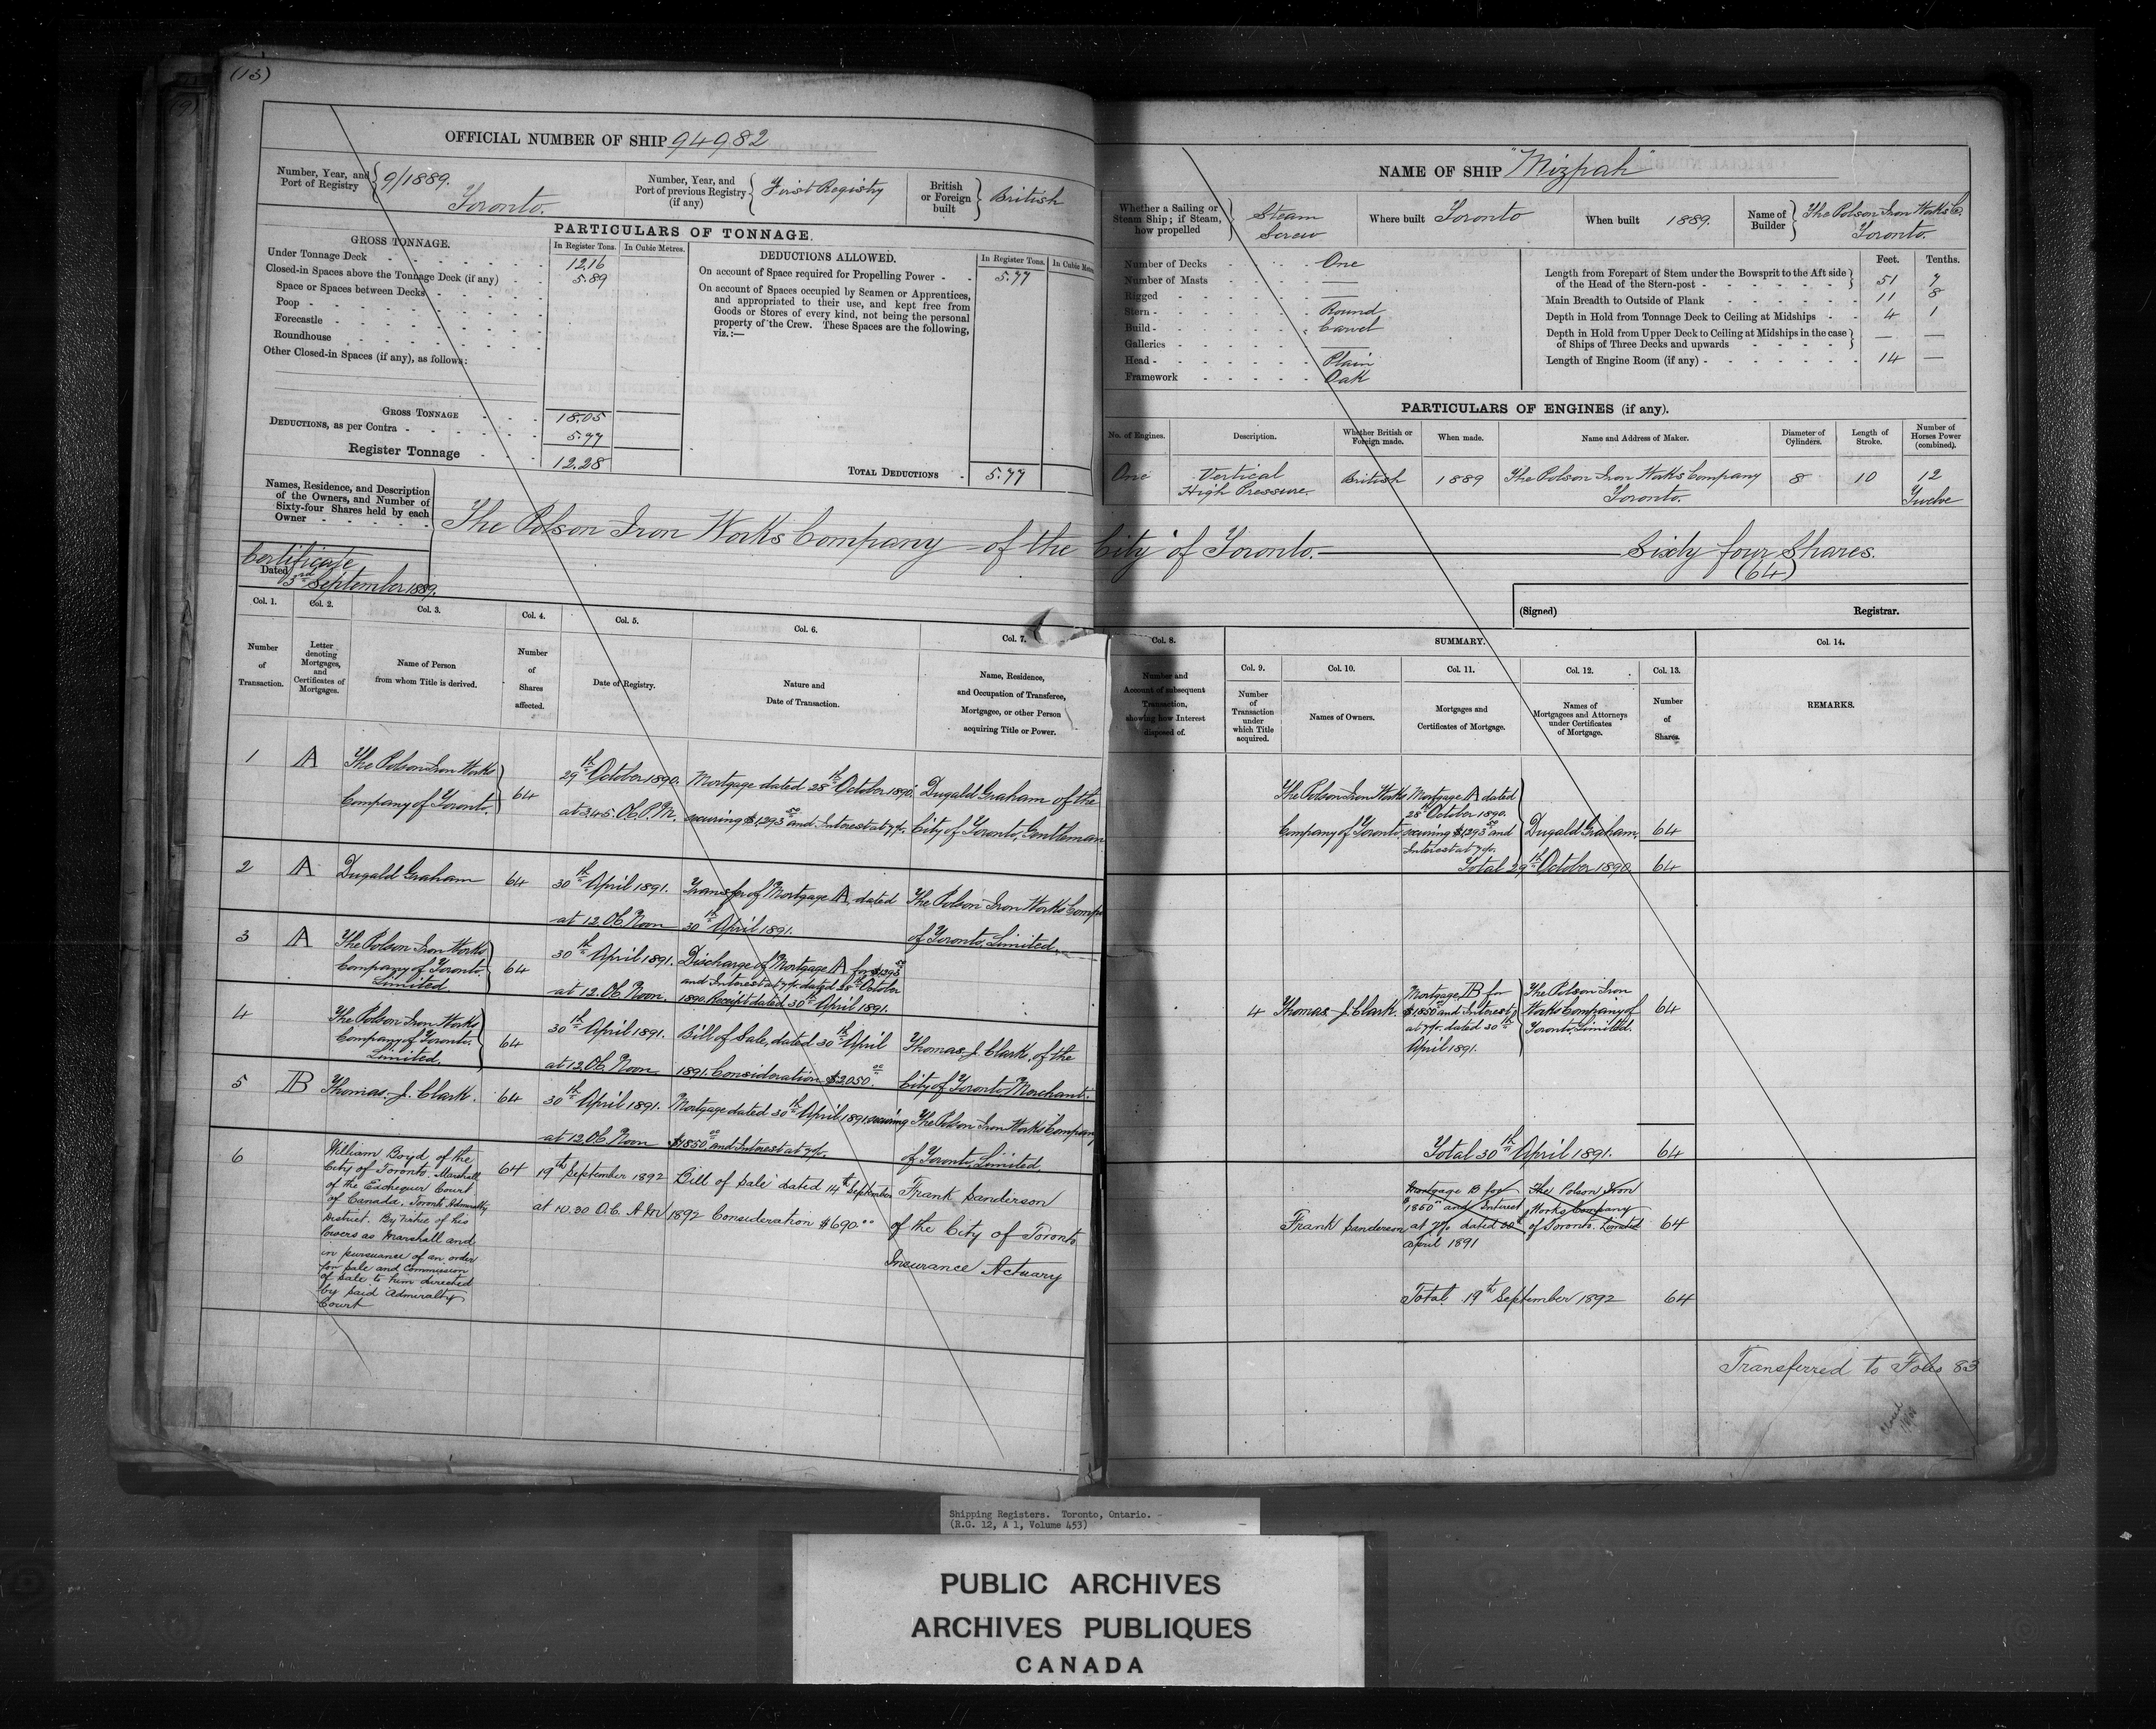 (13)
OFFICIAL NUMBER OF SHIP 94982
Number, Year, and Port of Registry } 9/1889. Toronto.
Number, Year, and Port of previous Registry (if any) { First Registry
British or Foreign built } British
PARTICULARS OF TONNAGE.
GROSS TONNAGE. In Register Tons. In Cubic Metres.
Under Tonnage Deck 12.16
Closed-in Spaces above the Tonnage Deck (if any) 5.89
Space or Spaces between Decks
Poop
Forecastle
Roundhouse
Other Closed-in Spaces (if any), as follows:
GROSS TONNAGE 18.05
DEDUCTIONS, as per Contra 5.77
Register Tonnage 12.28
DEDUCTIONS ALLOWED. In Register Tons. In Cubic
On account of Space required for Propelling Power 5.77
On account of Spaces occupied by Seamen or Apprentices,
and appropriated to their use, and kept free from
Goods or Stores of every kind, not being the personal
property of the Crew. These Spaces are the following,
viz.:—
TOTAL DEDUCTIONS 5.77
Names, Residence, and Description
of the Owners, and Number of
Sixty-four Shares held by each
Owner
Certificate
Dated 3rd September 1889.
The Polson Iron Works Company of the City of Toronto. Sixty four Shares.
(64)
NAME OF SHIP "Mizpah"
Whether a Sailing or Steam Ship; if Steam, how propelled } Steam Screw
Where built Toronto
When built 1889.
Name of Builder { The Polson Iron Works Co. Toronto.
Number of Decks One
Number of Masts —
Rigged —
Stern Round
Build Carvel
Galleries —
Head Plain
Framework Oak
Feet. Tenths.
Length from Forepart of Stem under the Bowsprit to the Aft side
of the Head of the Stern-post 51 7
Main Breadth to Outside of Plank 11 8
Depth in Hold from Tonnage Deck to Ceiling at Midships 4 1
Depth in Hold from Upper Deck to Ceiling at Midships in the case
of Ships of Three Decks and upwards — —
Length of Engine Room (if any) 14 —
PARTICULARS OF ENGINES (if any).
No. of Engines. Description. Whether British or Foreign made. When made. Name and Address of Maker. Diameter of Cylinders. Length of Stroke. Number of Horses Power (combined).
One Vertical High Pressure British 1889 The Polson Iron Works Company Toronto. 8 10 12 Twelve
(Signed) Registrar.
Col. 1. Col. 2. Col. 3. Col. 4. Col. 5. Col. 6. Col. 7.
Number of Transaction.
Letter denoting Mortgages, and Certificates of Mortgages.
Name of Person from whom Title is derived.
Number of Shares affected.
Date of Registry.
Nature and Date of Transaction.
Name, Residence, and Occupation of Transferee, Mortgagee, or other Person acquiring Title or Power.
1 A The Polson Iron Works Company of Toronto. 64
29th October 1890. at 3.45. Oc. P.M.
Mortgage dated 28th October 1890. securing $1,293.50 and Interest at 7 p.c.
Dugald Graham of the City of Toronto, Gentleman
2 A Dugald Graham 64
30th April 1891. at 12 Oc. Noon
Transfer of Mortgage A, dated 30th April 1891.
The Polson Iron Works Comp of Toronto, Limited.
3 A The Polson Iron Works Company of Toronto Limited 64
30th April 1891. at 12. Oc. Noon.
Discharge of Mortgage A for $1293.50 and Interest at 7 p.c. dated 28th October 1890. Receipt dated 30th April 1891.
4 The Polson Iron Works Company of Toronto. Limited. 64
30th April 1891. at 12 Oc. Noon
Bill of Sale, dated 30th April 1891. Consideration $2050.00
Thomas J. Clark, of the City of Toronto, Merchant.
5 B Thomas J. Clark. 64
30th April 1891. at 12 Oc. Noon
Mortgage dated 30th April 1891 securing $1850.00 and Interest at 7 p.c.
The Polson Iron Works Company of Toronto, Limited.
6 William Boyd of the
City of Toronto. Marshall
of the Exchequer Court
of Canada. Toronto Admiralty
District. By virtue of his
Powers as Marshall and
in pursuance of an order
for sale and Commission
of Sale to him directed
by said Admiralty
Court
64 19th September 1892 at 10.30 O.C. A.M
Bill of Sale dated 14th September 1892 Consideration $690.00
Frank Sanderson
of the City of Toronto
Insurance Actuary
Col. 8. SUMMARY. Col. 14.
Number and Account of subsequent Transaction, showing how Interest disposed of.
Col. 9. Col. 10. Col. 11. Col. 12. Col. 13.
Number of Transaction under which Title acquired.
Names of Owners.
Mortgages and Certificates of Mortgage.
Names of Mortgagees and Attorneys under Certificates of Mortgage.
Number of Shares.
REMARKS.
The Polson Iron Works Company of Toronto.
Mortgage A dated 28th October 1890. securing $1293.50 and Interest at 7 p.c.
Dugald Graham. 64
Total 29th October 1890. 64
4 Thomas J. Clark.
Mortgage B for $1850.00 and Interest at 7 p.c. dated 30th April 1891.
The Polson Iron Works Company of Toronto, Limited. 64
Total 30th April 1891. 64
Frank Sanderson
Mortgage B for $1850.00 and Interest at 7 p.c. dated 30th April 1891
The Polson Iron Works Company of Toronto. Limited 64
Total 19th September 1892 64
Transferred to Folio 83
Closed
Shipping Registers. Toronto, Ontario. -
(R.G. 12, A 1, Volume 453)
PUBLIC ARCHIVES
ARCHIVES PUBLIQUES
CANADA